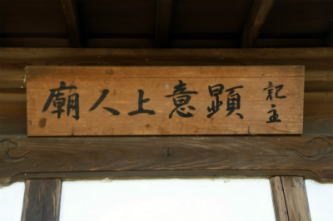 記主
顕意上人廟